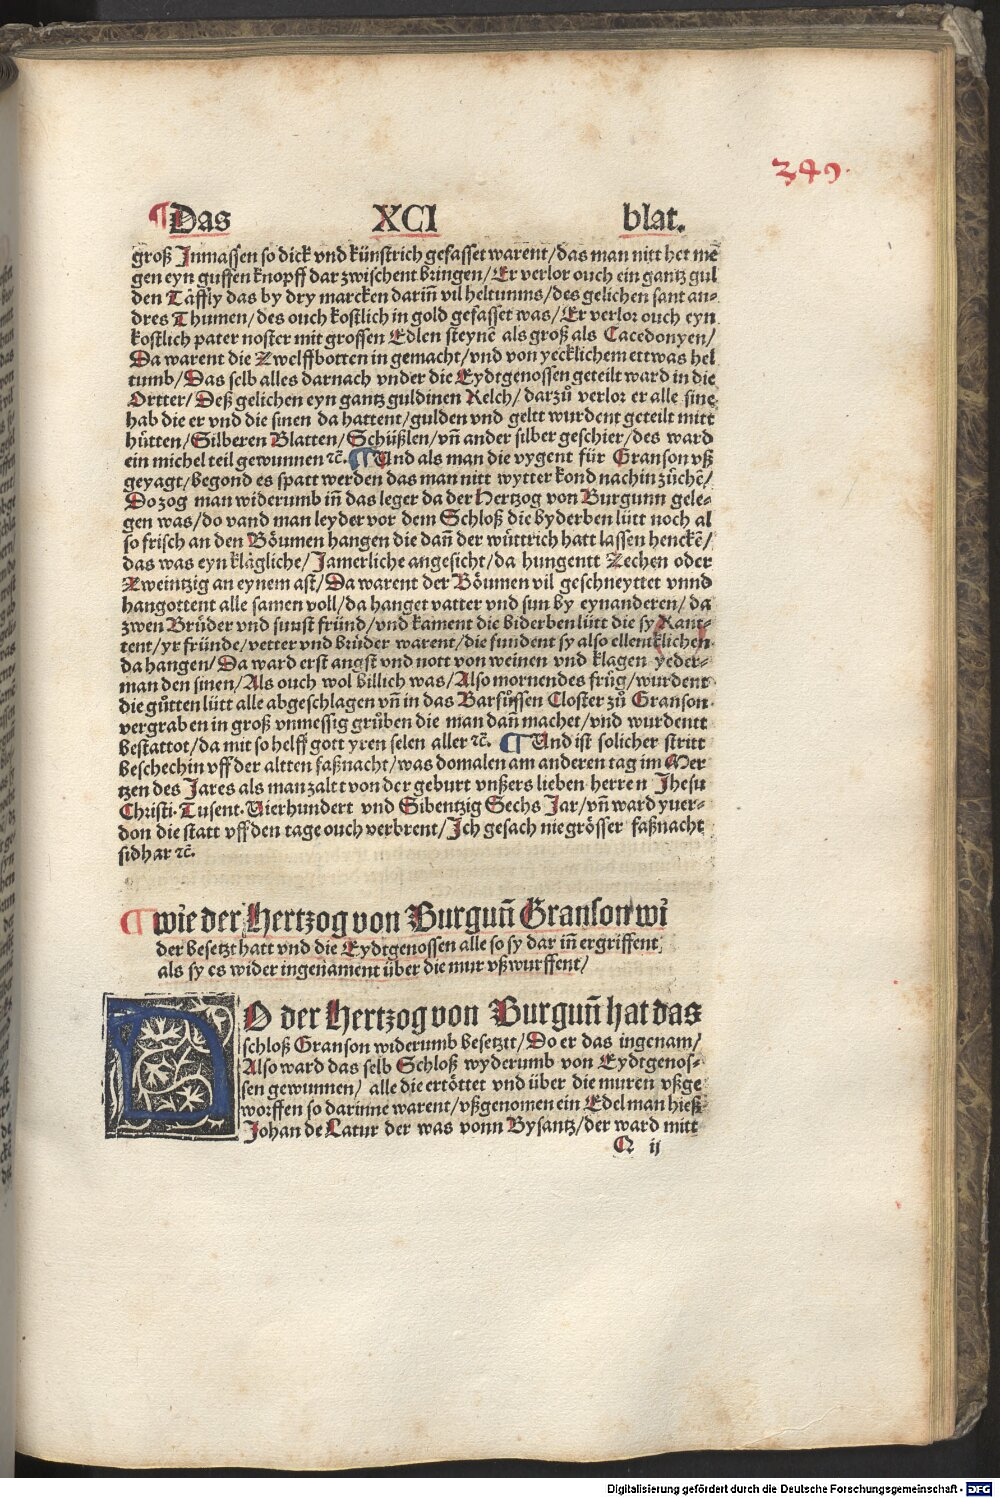 349.
¶Das XCI blat.
groß Inmassen so dick vnd künstrich gefasset warent/das man nitt het mē
gen eyn guffen knopff dar zwischent bringen/Er verlor ouch ein gantz gul
den Täffly das by dry marcken dariñ vil heltumms/des gelichen sant an⸗
dres Thumen/des ouch kostlich in gold gefasset was/Er verlor ouch eyn
kostlich pater noster mit grossen Edlen steynē als groß als Cacedonyen/
Da warent die Zwelffbotten in gemacht/vnd von yecklichem ettwas hel
tumb/Das selb alles darnach vnder die Eydtgenossen geteilt ward in die
Ortter/Deß gelichen eyn gantz guldinen Kelch/darzů verlor er alle sine
hab die er vnd die sinen da hattent/gulden vnd geltt wurdent geteilt mitt
hütten/Silberen Blatten/Schüßlen/vñ ander silber geschier/des ward
ein michel teil gewunnen ⁊c̄. ¶Und als man die vygent für Granson vß
geyagt/begond es spatt werden das man nitt wytter kond nachin zůchē/
Do zog man widerumb iñ das leger da der Hertzog von Burgunn gele⸗
gen was/do vand man leyder vor dem Schloß die byderben lütt noch al
so frisch an den Böumen hangen die dañ der wüttrich hatt lassen henckē/
das was eyn klägliche/Jamerliche angesicht/da hungentt Zechen oder
Zweintzig an eynem ast/Da warent der Böumen vil geschneyttet vnnd
hangottent alle samen voll/da hanget vatter vnd sun by eynanderen/da
zwen Brüder vnd sunst fründ/vnd kament die biderben lütt die sy Kant⸗
tent/yr fründe/vetter vnd brüder warent/die fundent sy also ellentklichen
da hangen/Da ward erst angst vnd nott von weinen vnd klagen yeder⸗
man den sinen/Als ouch wol billich was/Also mornendes früg/wurdent
die gůtten lütt alle abgeschlagen vñ in das Barfůssen Closter zů Granson
vergraben in groß vnmessig grüben die man dañ machet/vnd wurdentt
bestattot/da mit so helff gott yren selen aller ⁊c̄. ¶Und ist solicher stritt
beschechin vff der altten faßnacht/was domalen am anderen tag im Mer
tzen des Jares als man zaltt von der geburt vnßers lieben herren Jhesu
Christi.Tusent.Vierhundert vnd Sibentzig Sechs Jar/vñ ward yuer⸗
don die statt vff den tage ouch verbrent/Ich gesach nie grösser faßnacht
sidhar ⁊c̄.
¶wie der Hertzog von Burguñ Granson wi
der besetzt hatt vnd die Eydtgenossen alle so sy dar iñ ergriffent
als sy es wider ingenament über die mur vßwurffent/
DO der Hertzog von Burguñ hat das
schloß Granson widerumb besetzt/Do er das ingenam/
Also ward das selb Schloß wyderumb von Eydtgenos⸗
sen gewunnen/alle die ertöttet vnd über die muren vßge
worffen so darinne warent/vßgenomen ein Edelman hieß
Johan de Latur der was vonn Bysantz/der ward mitt
Q ij
Digitalisierung gefördert durch die Deutsche Forschungsgemeinschaft - DFG